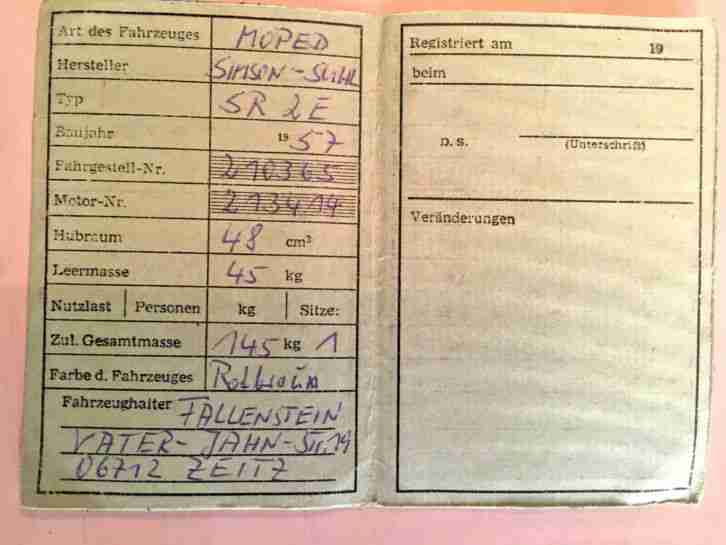 Art des Fahrzeuges MOPED
Hersteller SIMSON-SUHL
Typ SR 2E
Baujahr 19 57
Fahrgestell-Nr. 210365
Motor-Nr. 213414
Hubraum 48 cm³
Leermasse 45 kg
Nutzlast Personen kg Sitze:
Zul. Gesamtmasse 145 kg 1
Farbe d. Fahrzeuges Rotbraun
Fahrzeughalter FALLENSTEIN
VATER-JAHN-Str. 19
06712 ZEITZ
Registriert am 19
beim
D. S. (Unterschrift)
Veränderungen